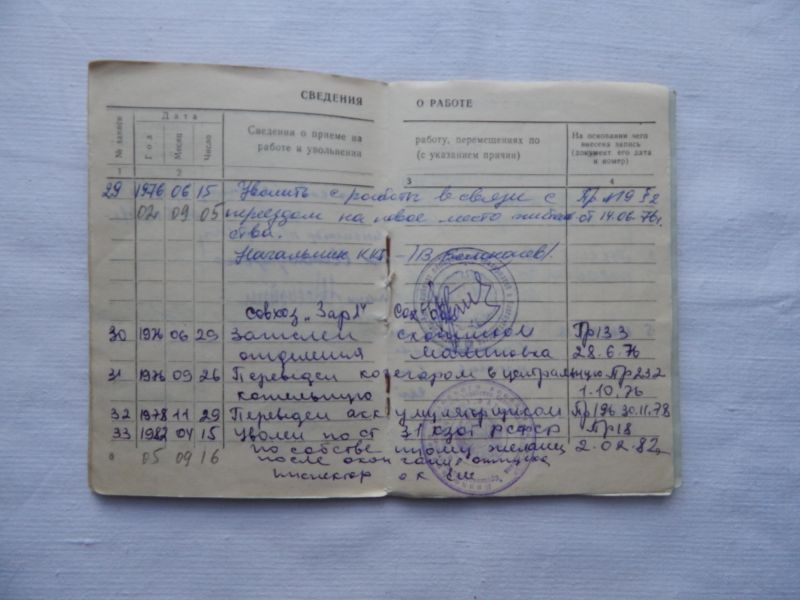 СВЕДЕНИЯ О РАБОТЕ
№ записи
Дата
Год
Месяц
Число
Сведения о приеме на работу, перемещениях по
работе и увольнении (с указанием причин)
На основании чего
внесена запись
(документ его дата
и номер)
1 2 3 4
29 1976 06 15 Уволить с работы в связи с Пр №19 §2
02 09 05 переездом на новое место житель от 14.06.76г.
ства.
Начальник ККП
совхоз „Заря"
30 1976 06 29 Зачислен скотником Пр133
отделения Малиновка 28.6.76
31 1976 09 26 Переведен кочегаром в центральную Пр232
котельную 1.10.76
32 1978 11 29 Переведен аккумуляторщиком Пр196 30.11.78
33 1982 04 15 Уволен по ст 31 кзот РСФСР Пр18
по собственному желанию 2.02.82г
05 09 16 после окончания отпуска
инспектор ок